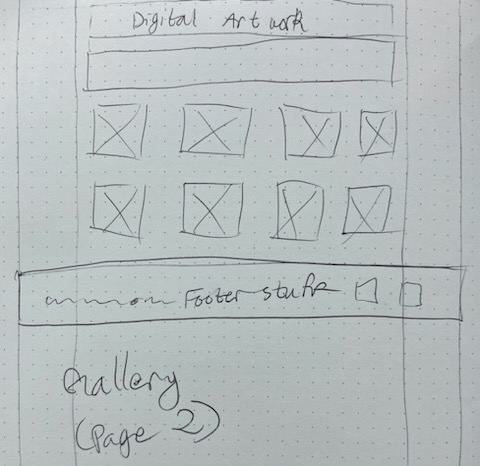 Digital Artwork
Footer stuff
Gallery
(page 2)